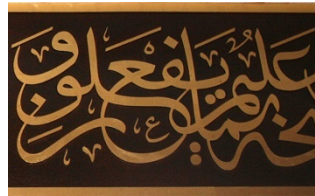 عليم بما يفعلون